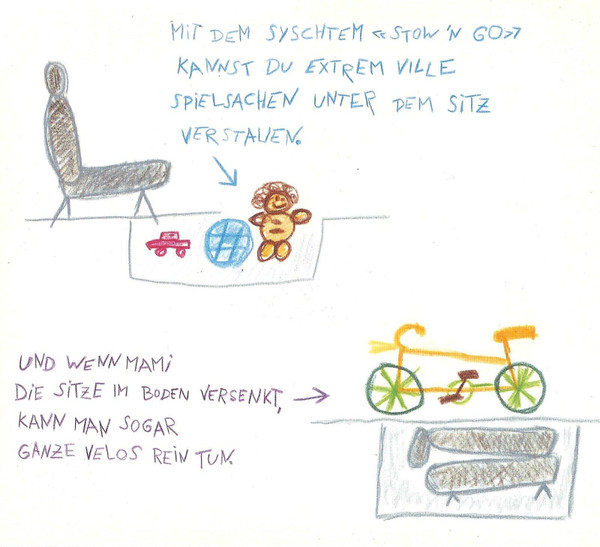 MIT DEM SYSCHTEM «STOW'N GO»
KANNST DU EXTREM VILLE
SPIELSACHEN UNTER DEM SITZ
VERSTAUEN.
UND WENN MAMI
DIE SITZE IM BODEN VERSENKT,
KANN MAN SOGAR
GANZE VELOS REIN TUN.